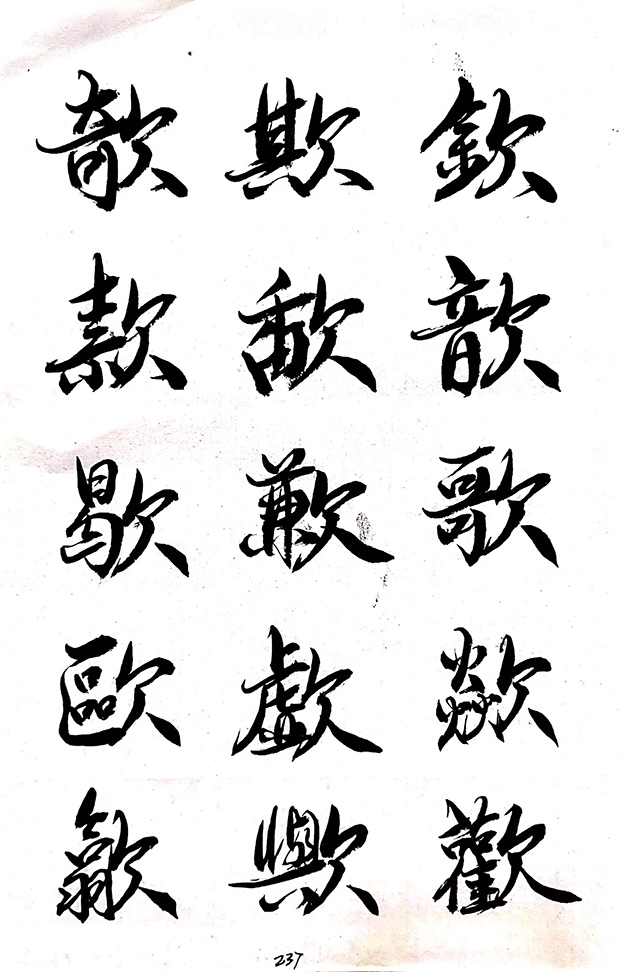 欹 欺 欽
款 歃 歆
歇 歉 歌
歐 歔 歘
歙 歟 歡
237